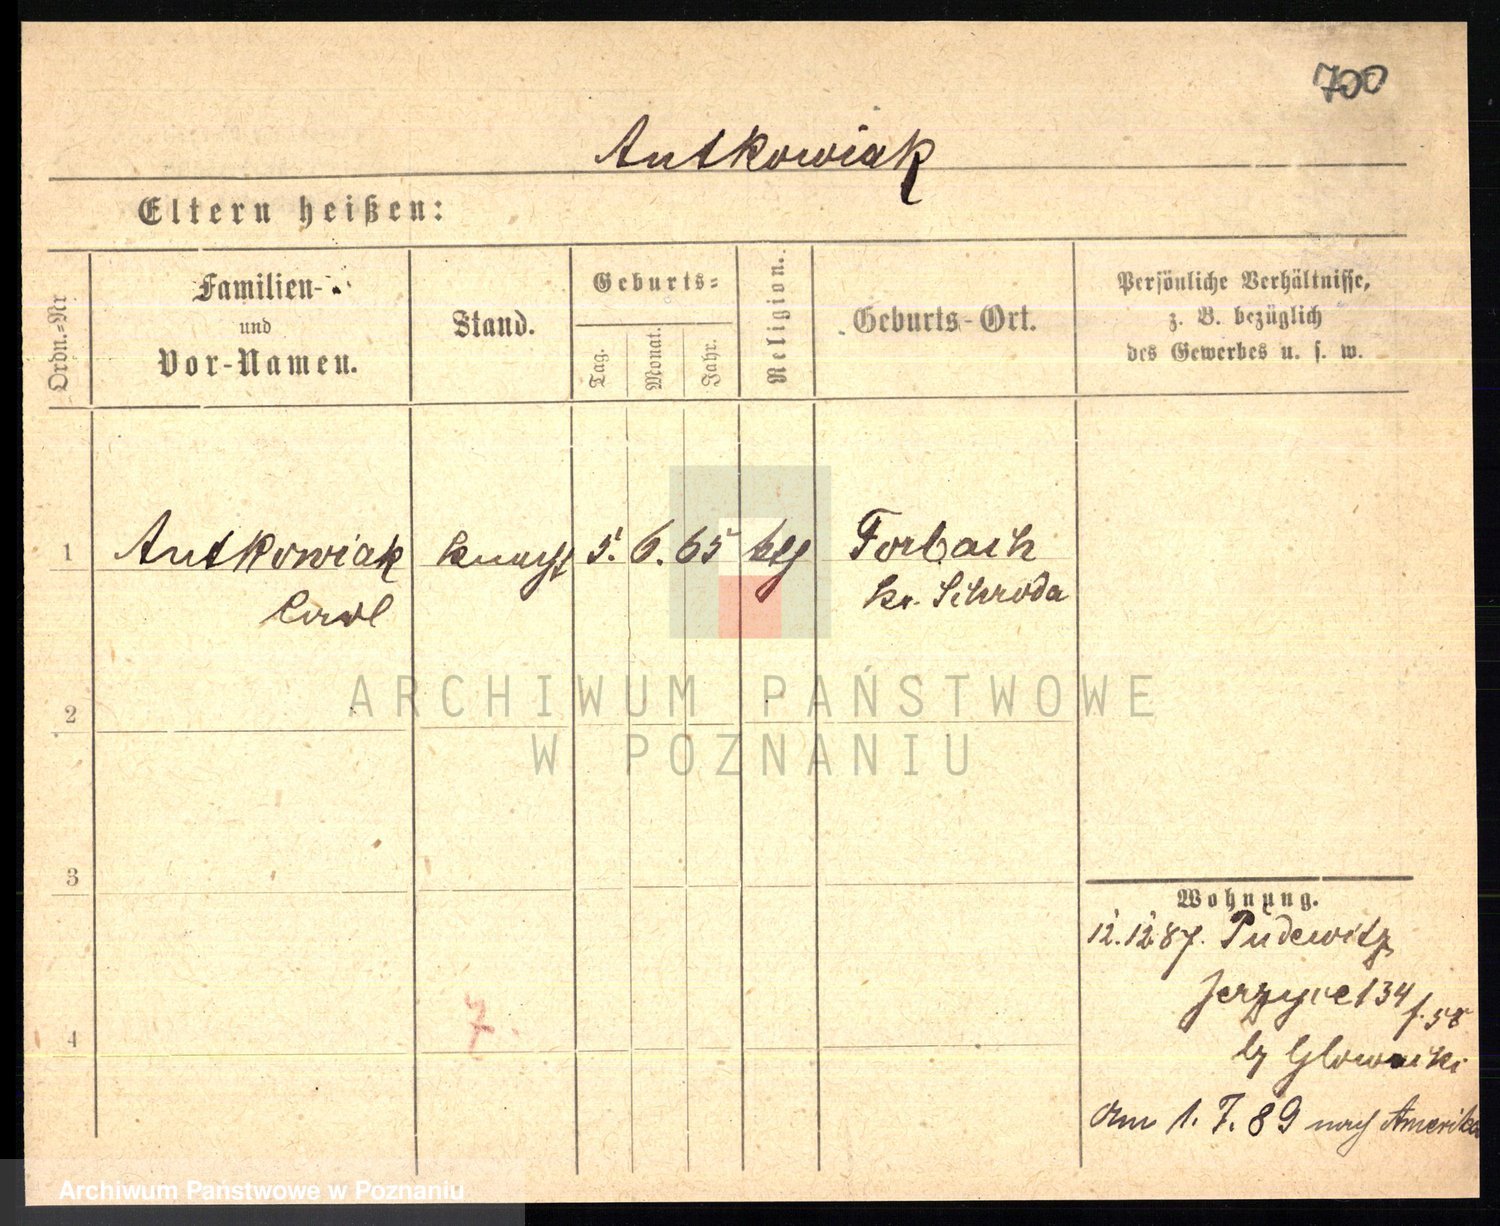 700
Antkowiak
Eltern heißen:
Ordn.-Nr
Familien-
und
Vor-Namen.
Stand.
Geburts-
Tag.
Monat.
Jahr.
Religion.
Geburts-Ort.
Persönliche Verhältnisse,
z. B. bezüglich
des Gewerbes u. s. w.
1 Antkowiak Knecht 5. 6. 65 ktl Forbach
Carl Kr. Schroda
2
3
4
7.
Wohnung.
12.12 87. Pudewitz
Jerzyce 134
by Glowacki
am 1. 7. 89 nach Amerika
ARCHIWUM PAŃSTWOWE
W POZNANIU
Archiwum Państwowe w Poznaniu